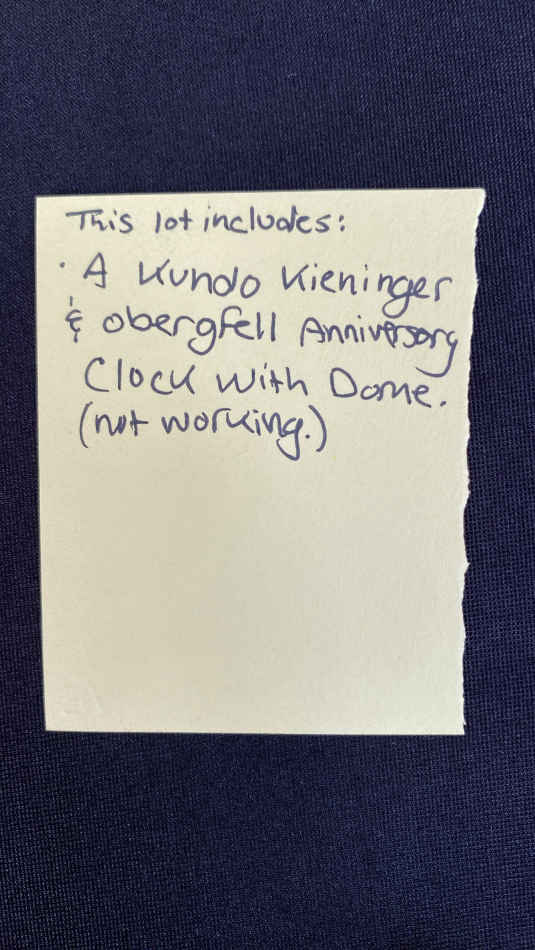 This lot includes:
· A Kundo Kieninger
& obergfell Anniversary
Clock with Dome.
(not working.)